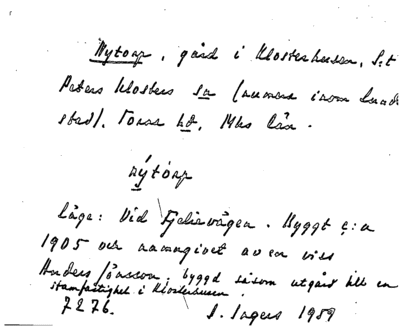 Nytorp, gård i Klosterhusen, S:t
Peters Klosters sn (numera inom Lunds
stad), Torna hd, Mhs län.
nýtòrp
Läge: Vid Fjelievägen. Byggt c:a
1905 och namngivet av en viss
Anders Jönsson, byggd såsom utgård till en
stamfastighet i Klosterhusen.
7276. I. Ingers 1959